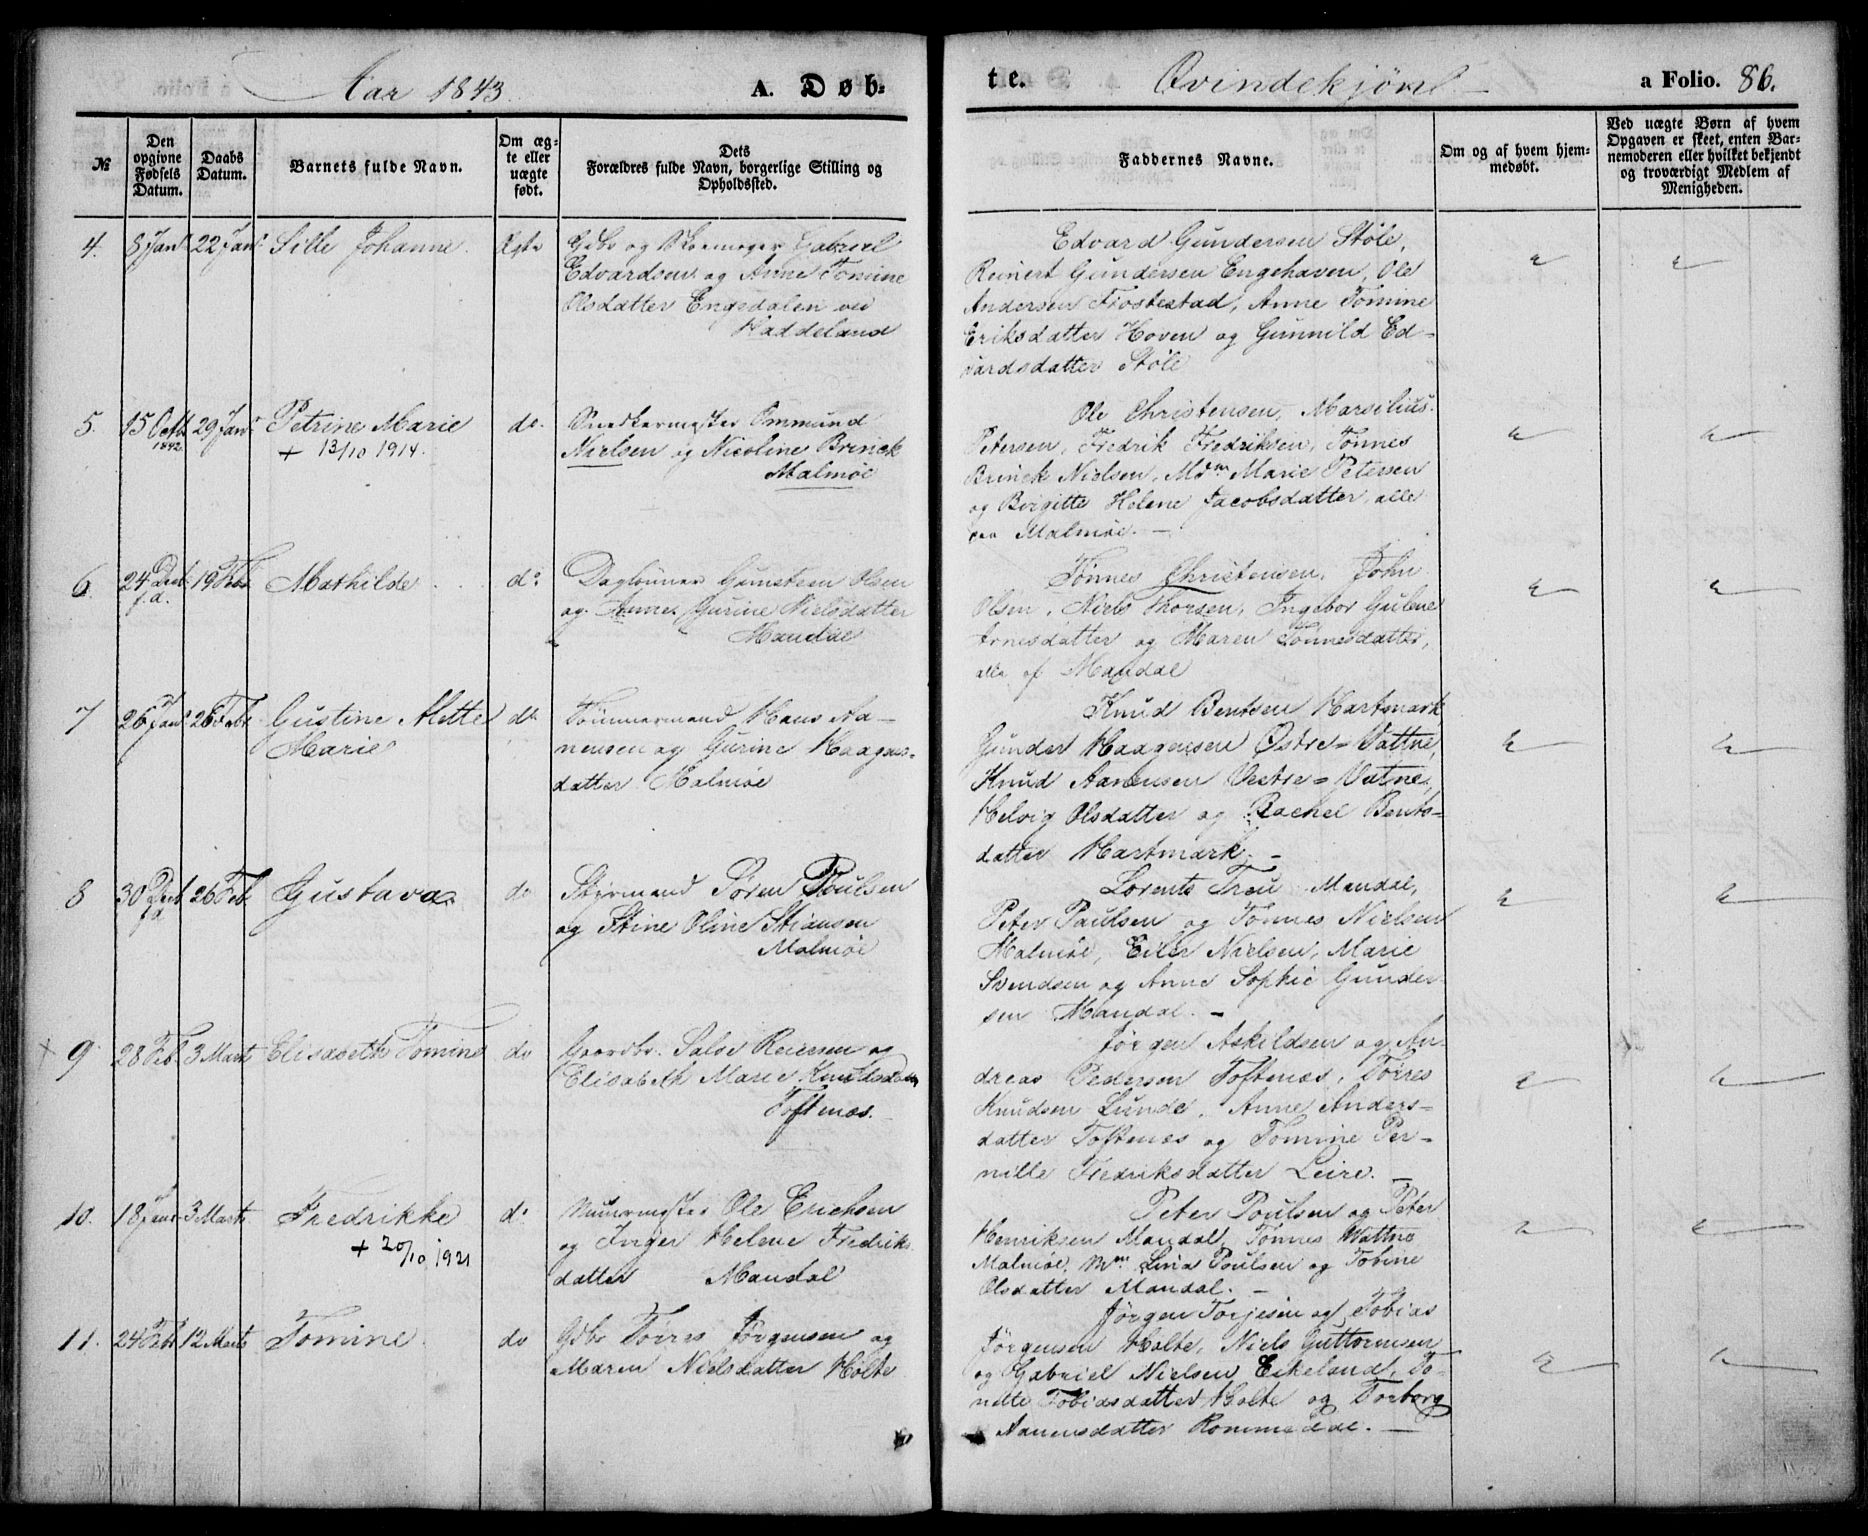 Aar 1843. A. Døb-
te. Qvindekjøn a Folio. 86.
№
Den opgivne Fødsels Datum.
Daabs Datum.
Barnets fulde Navn.
Om ægte eller uægte født.
Dets Forældres fulde Navn, borgerlige Stilling og Opholdssted.
Faddernes Navne.
Om og af hvem hjemmedøbt.
Ved uægte Børn af hvem Opgaven er skeet, enten Barnemoderen eller hvilket bekjendt og troværdigt Medlem af Menigheden.
4. 8 Jan. 22 Jan. Sille Johanne. Ægte
Gbr og Skoemager Gabriel
Edvardsen og Anne Tomine
Olsdatter Engedalen ved
Haddeland
Edvard Gundersen Støle,
Reinert Gundersen Engehaven, Ole
Andersen Frostestad, Anne Tomine
Eriksdatter Hoven og Gunnild Ed-
vardsdatter Støle
5. 15 Octb 1842 29 Jan. Petrine Marie do.
+ 13/10 1914.
Snedkermester Ommund
Nielsen og Nicoline Brinck
Malmøe
Ole Christensen, Marselius
Petersen, Fredrik Fredriksen, Tønnes
Brinck Nielsen, Mdm Marie Petersen
og Birgitte Helene Jacobsdatter, alle
paa Malmøe. —
6. 24 Decb f.d. 19 Febr Mathilde do
Daglønner Gumsteen Olsen
og Anne Gurine Nielsdatter
Mandal
Tønnes Christensen, John
Olsen, Niels Thorsen, Ingebor Gulene
Arnesdatter og Maren Tønnesdatter,
alle af Mandal
7 26 Jan. 26 Febr. Gustine Mette do
Marie
Tømmermand Hans Aa-
nensen og Gurine Haagens-
datter Malmøe
Knud Bentsen Hartmark
Gunder Haagensen Østre-Vattne,
Knud Aanensen Vestre-Vatne,
Helvig Olsdatter og Rachel Bents-
datter Hartmark. —
8 30 Decb f.d. 26 Feb Gustava. do
Styrmand Søren Poulsen
og Stine Oline Stiansen
Malmøe
Lorents Treu Mandal,
Peter Paulsen og Tønnes Nielsen
Malmøe, Eiler Nielsen, Marie
Svendsen og Anne Sophie Gunder-
sen Mandal. —
9. 28 Feb 3 Marts Elisabeth Tomine do
Gaardbr. Salve Reiersen og
Elisabeth Marie Knudsdatter
Toftenæs.
Jørgen Askildsen og An-
dreas Pedersen Toftenæs, Tørres
Knudsen Lunde, Anne Anders-
datter Toftenæs og Tomine Per-
nille Fredriksdatter Leire. —
10. 18 Janr 3 Marts Fredrikke do
+ 20/10 1921
Muurmester Ole Erichsen
og Inger Helene Fredriks
datter Mandal
Peter Poulsen og Peter
Henriksen Mandal, Tønnes Wattne
Malmøe, Mm Lina Poulsen og Tobine
Olsdatter Mandal. —
11. 24 Febr 12 Marts Tomine. do
Gdbr Tørres Jørgensen og
Maren Nielsdatter Holte
Jørgen Torjesen og Tobias
Jørgensen Holte, Niels Guttormsen
og Gabriel Nielsen Eikeland, To-
nette Tobiasdatter Holte og Torborg
Aanensdatter Rommedal. —